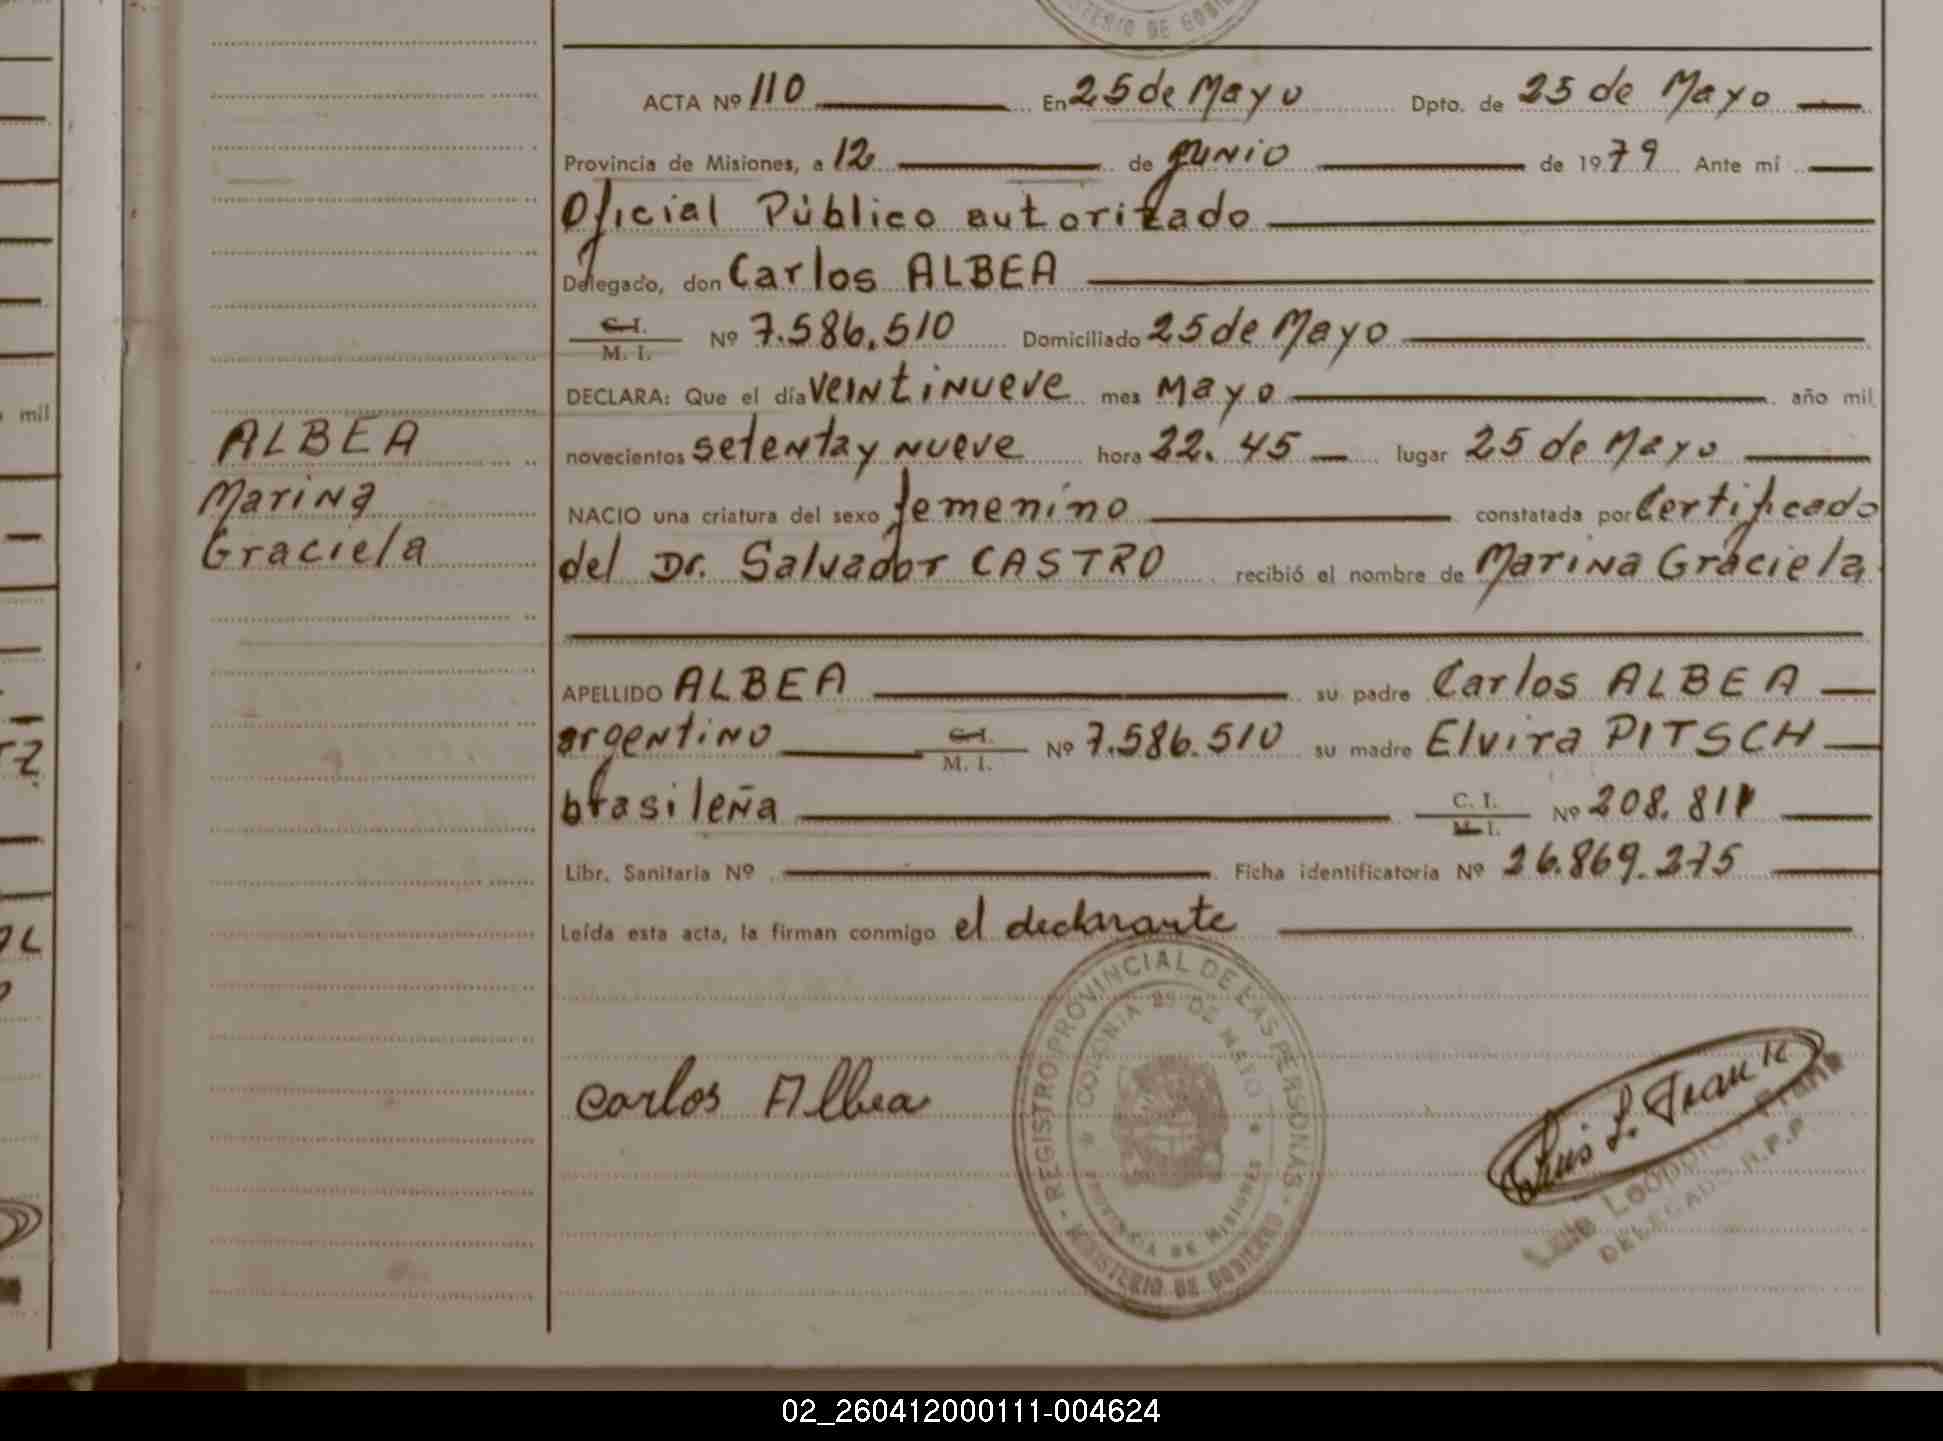 MINISTERIO DE GOBIERNO
ACTA Nº 110 En 25 de Mayo Dpto. de 25 de Mayo
Provincia de Misiones, a 12 de junio de 1979 Ante mí
Oficial Público autorizado
Delegado, don Carlos ALBEA
C. I. / M. I. Nº 7.586.510 Domiciliado 25 de Mayo
mil
DECLARA: Que el día veintinueve mes Mayo año mil
ALBEA
novecientos setenta y nueve hora 22.45 lugar 25 de Mayo
Marina
NACIO una criatura del sexo femenino constatada por Certificado
Graciela
del Dr. Salvador CASTRO recibió el nombre de Marina Graciela
APELLIDO ALBEA su padre Carlos ALBEA
argentino C. I. / M. I. Nº 7.586.510 su madre Elvira PITSCH
brasileña C. I. / M. I. Nº 208.811
Libr. Sanitaria Nº Ficha identificatoria Nº 26.869.275
Leída esta acta, la firman conmigo el declarante
REGISTRO PROVINCIAL DE LAS PERSONAS
COLONIA 25 DE MAYO
PROVINCIA DE MISIONES
MINISTERIO DE GOBIERNO
Carlos Albea
Luis L. Frank
DELEGADO R.P.P.
02_260412000111-004624